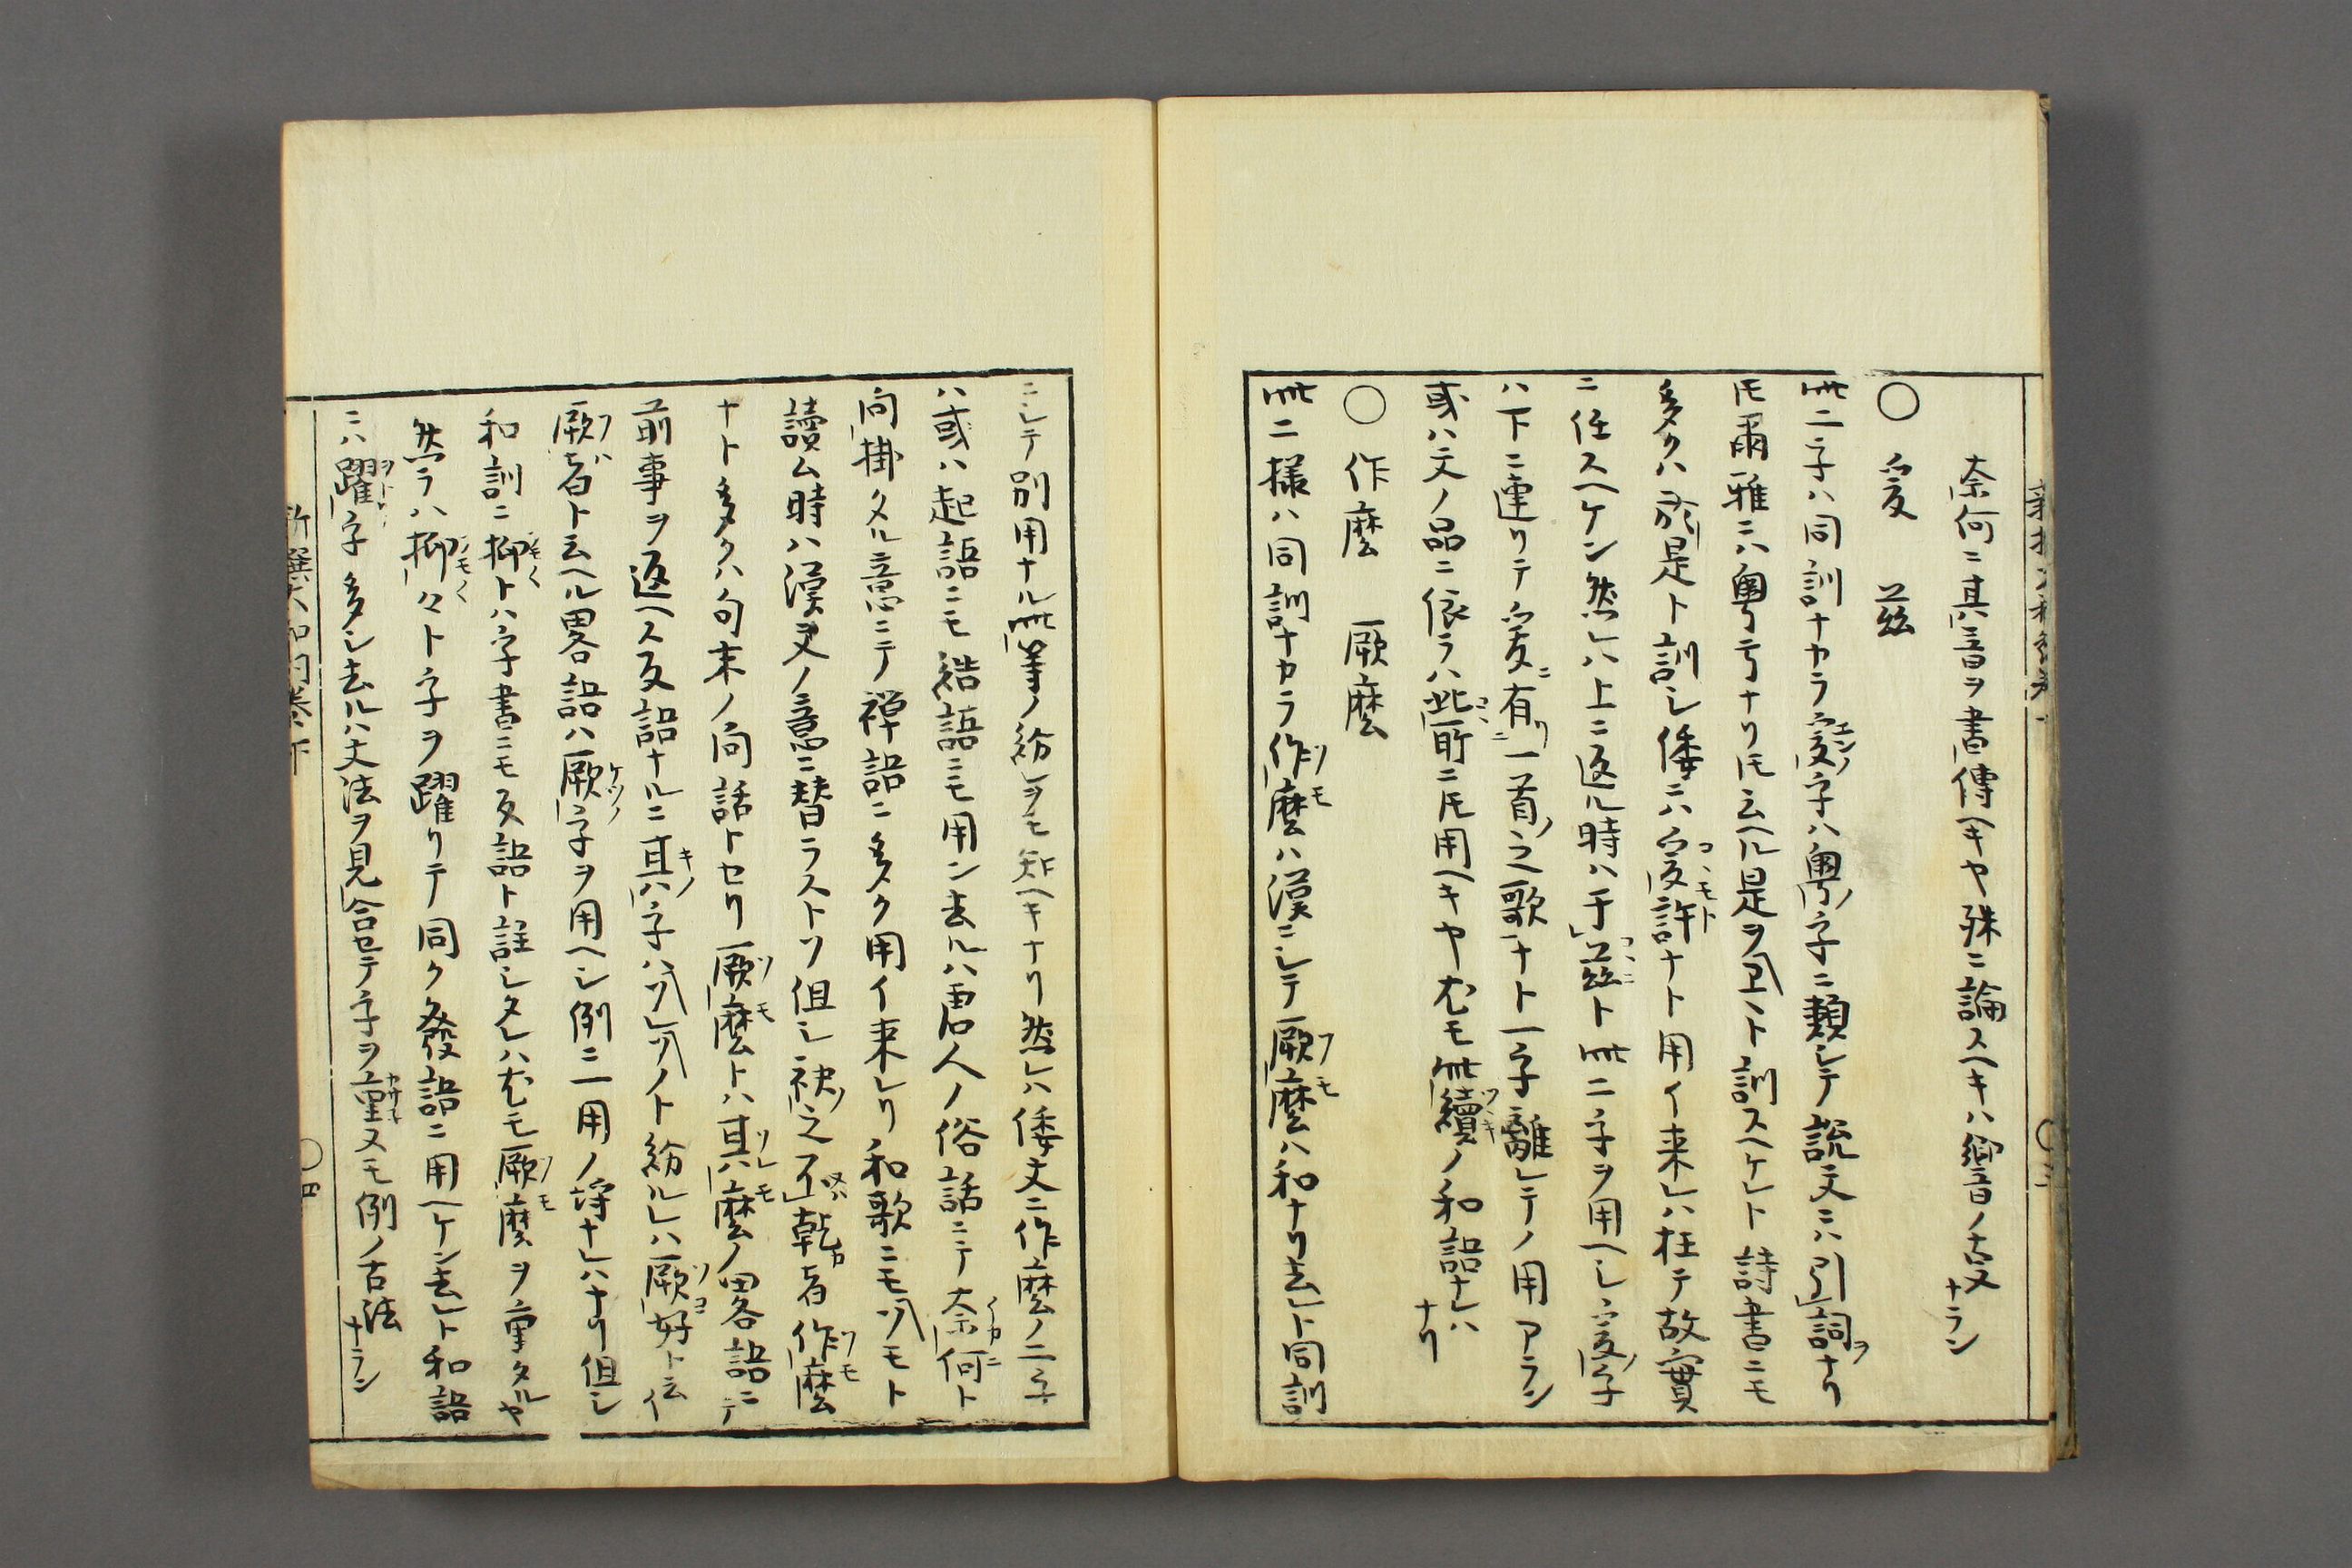 奈何ニ其音ヲ書傳ヘキヤ殊ニ論スヘキハ響音ノ古文ナラン
○ 爰 茲
此二字ハ同訓ナカラ爰字ハ粤字ニ類シテ説文ニハ引詞ナリ
トモ爾雅ニハ粤亏ナリトモ云ヘル是ヲコヽト訓スヘケレト詩書ニモ
多クハ於是ト訓シ倭ニハ爰許ナト用イ来レハ枉テ故實
ニ任スヘケン然レハ上ニ返ル時ハ于茲ト此二字ヲ用ヘシ爰字
ハ下ニ連リテ爰有一首之歌ナト一字離レテノ用アラン
或ハ文ノ品ニ依ラハ此所ニトモ用ヘキヤ尤モ此續ノ和語ナレハナリ
○ 作麼 厥麼
此二様ハ同訓ナカラ作麼ハ漢ニシテ厥麼ハ和ナリ去レト同訓
ニシテ別用ナル此等ノ紛ヲモ知ヘキナリ然レハ倭文ニ作麼ノ二字
ハ或ハ起語ニモ結語ニモ用ン去ルハ唐人ノ俗話ニテ奈何ト
問掛タル意ニテ禅語ニ多ク用イ来レリ和歌ニモソモト
讀ム時ハ漢文ノ意ニ替ラストソ但シ袂之不乾者作麼
ナト多クハ句末ノ問話トセリ厥麼トハ其麼ノ畧語ニテ
前事ヲ返ヘス反語ナルニ其字ハソレソノト紛ルレハ厥好ト云イ
厥者ト云ヘル畧語ハ厥字ヲ用ヘシ例ニ一用ノ埒ナレハナリ但シ
和訓ニ抑トハ字書ニモ反語ト註シタレハ尤モ厥麼ヲ重タルヤ
然ラハ抑々ト字ヲ躍リテ同ク発語ニ用ヘケン去レト和語
ニハ躍字多シ去ルハ文法ヲ見合セテ字ヲ重ヌモ例ノ古法ナラン
新撰大和詞巻下
○四